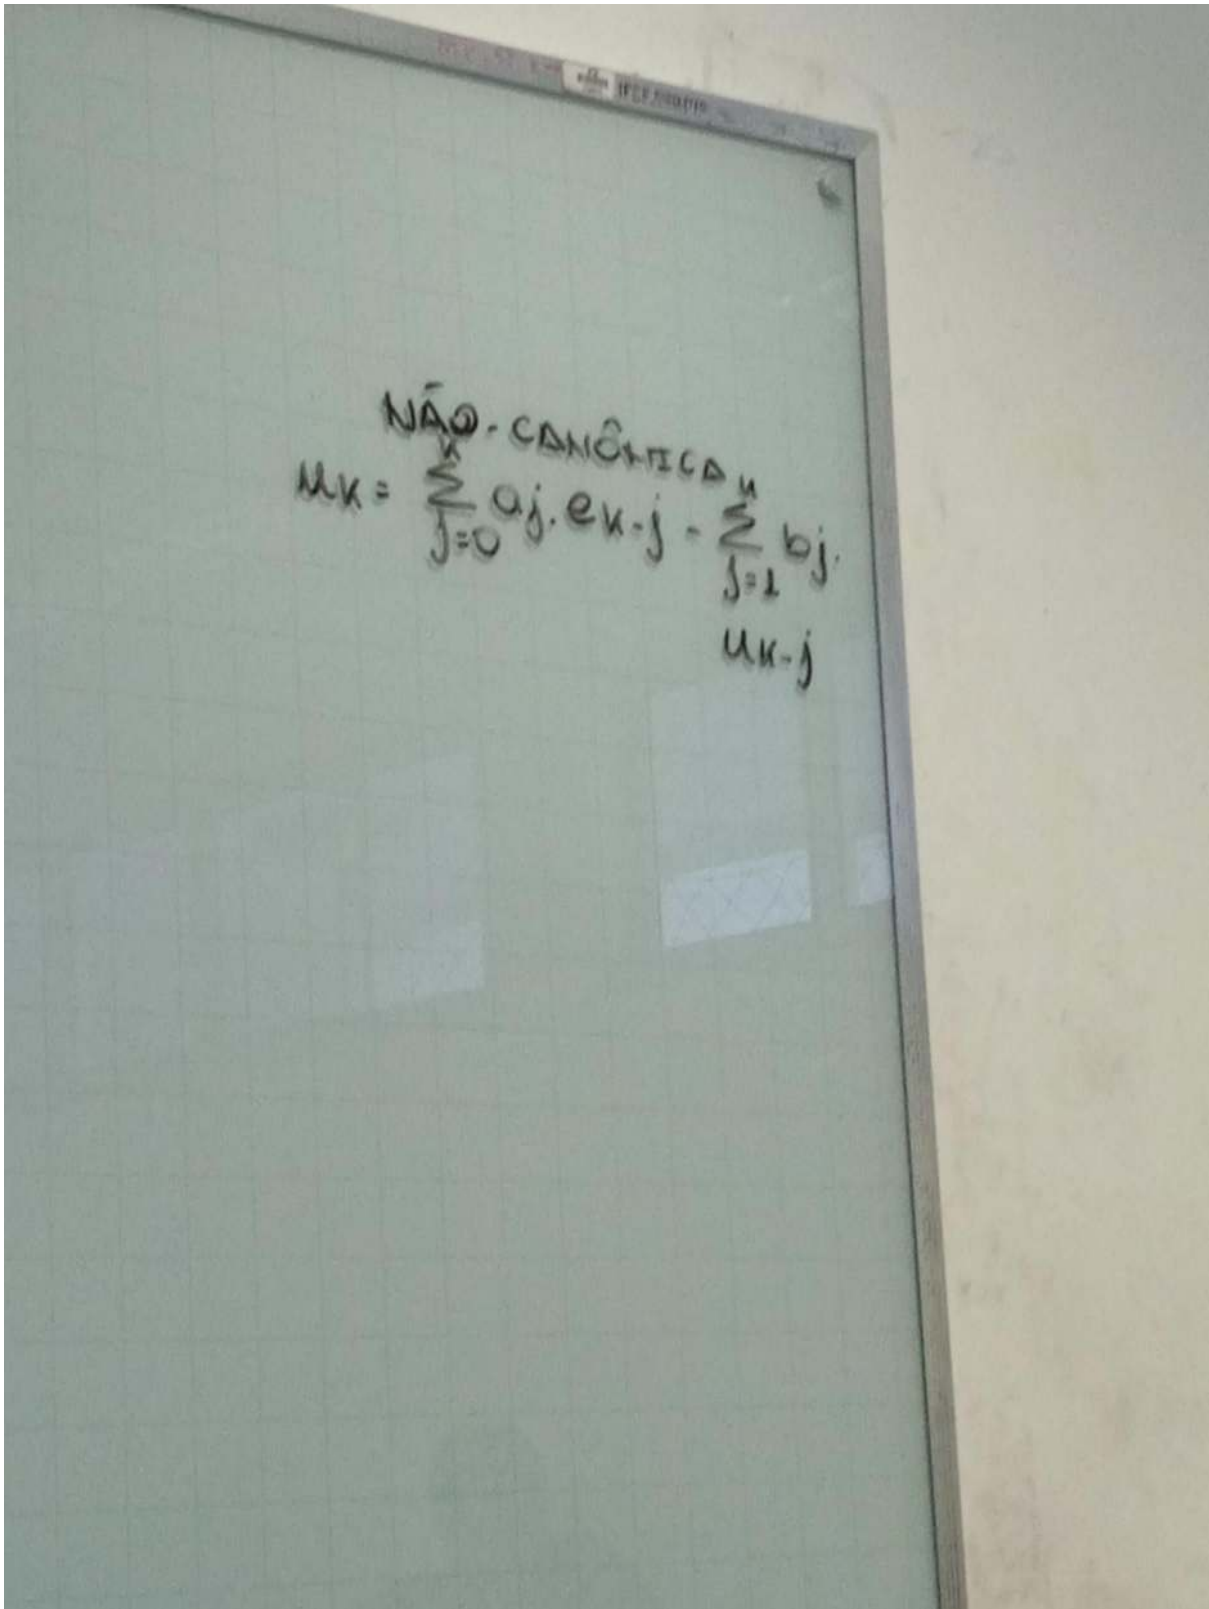 NÃO-CANÔNICA
uk = Σ(j=0)^(k) aj. ek-j - Σ(j=1)^(k) bj.
uk-j